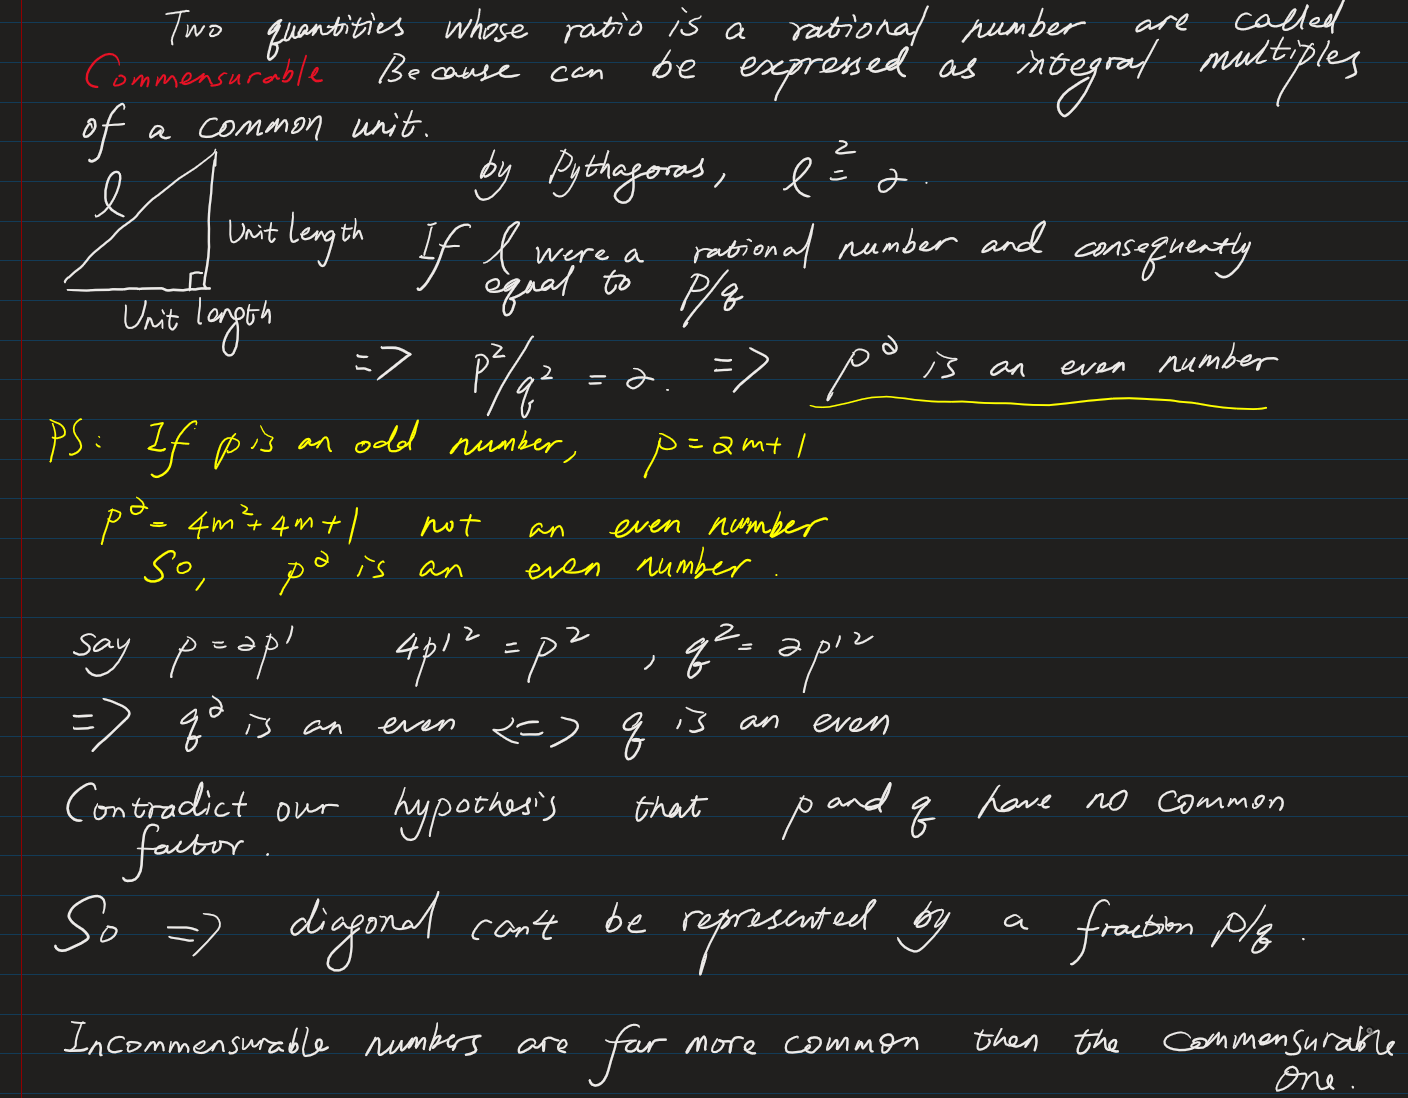 Two quantities whose ratio is a rational number are called
Commensurable Because can be expressed as integral multiples
of a common unit.
l
Unit length
Unit length
by Pythagoras, l² = 2.
If l were a rational number and consequently
equal to P/q
=> P²/q² = 2. => p² is an even number
PS: If p is an odd number, p = 2m+1
p² = 4m²+4m+1 not an even number
So, p² is an even number.
Say p = 2p' 4p'² = p² , q² = 2p'²
=> q² is an even <=> q is an even
Contradict our hypothesis that p and q have no common
factor.
So => diagonal can't be represented by a fraction P/q.
Incommensurable numbers are far more common then the commensurable
one.